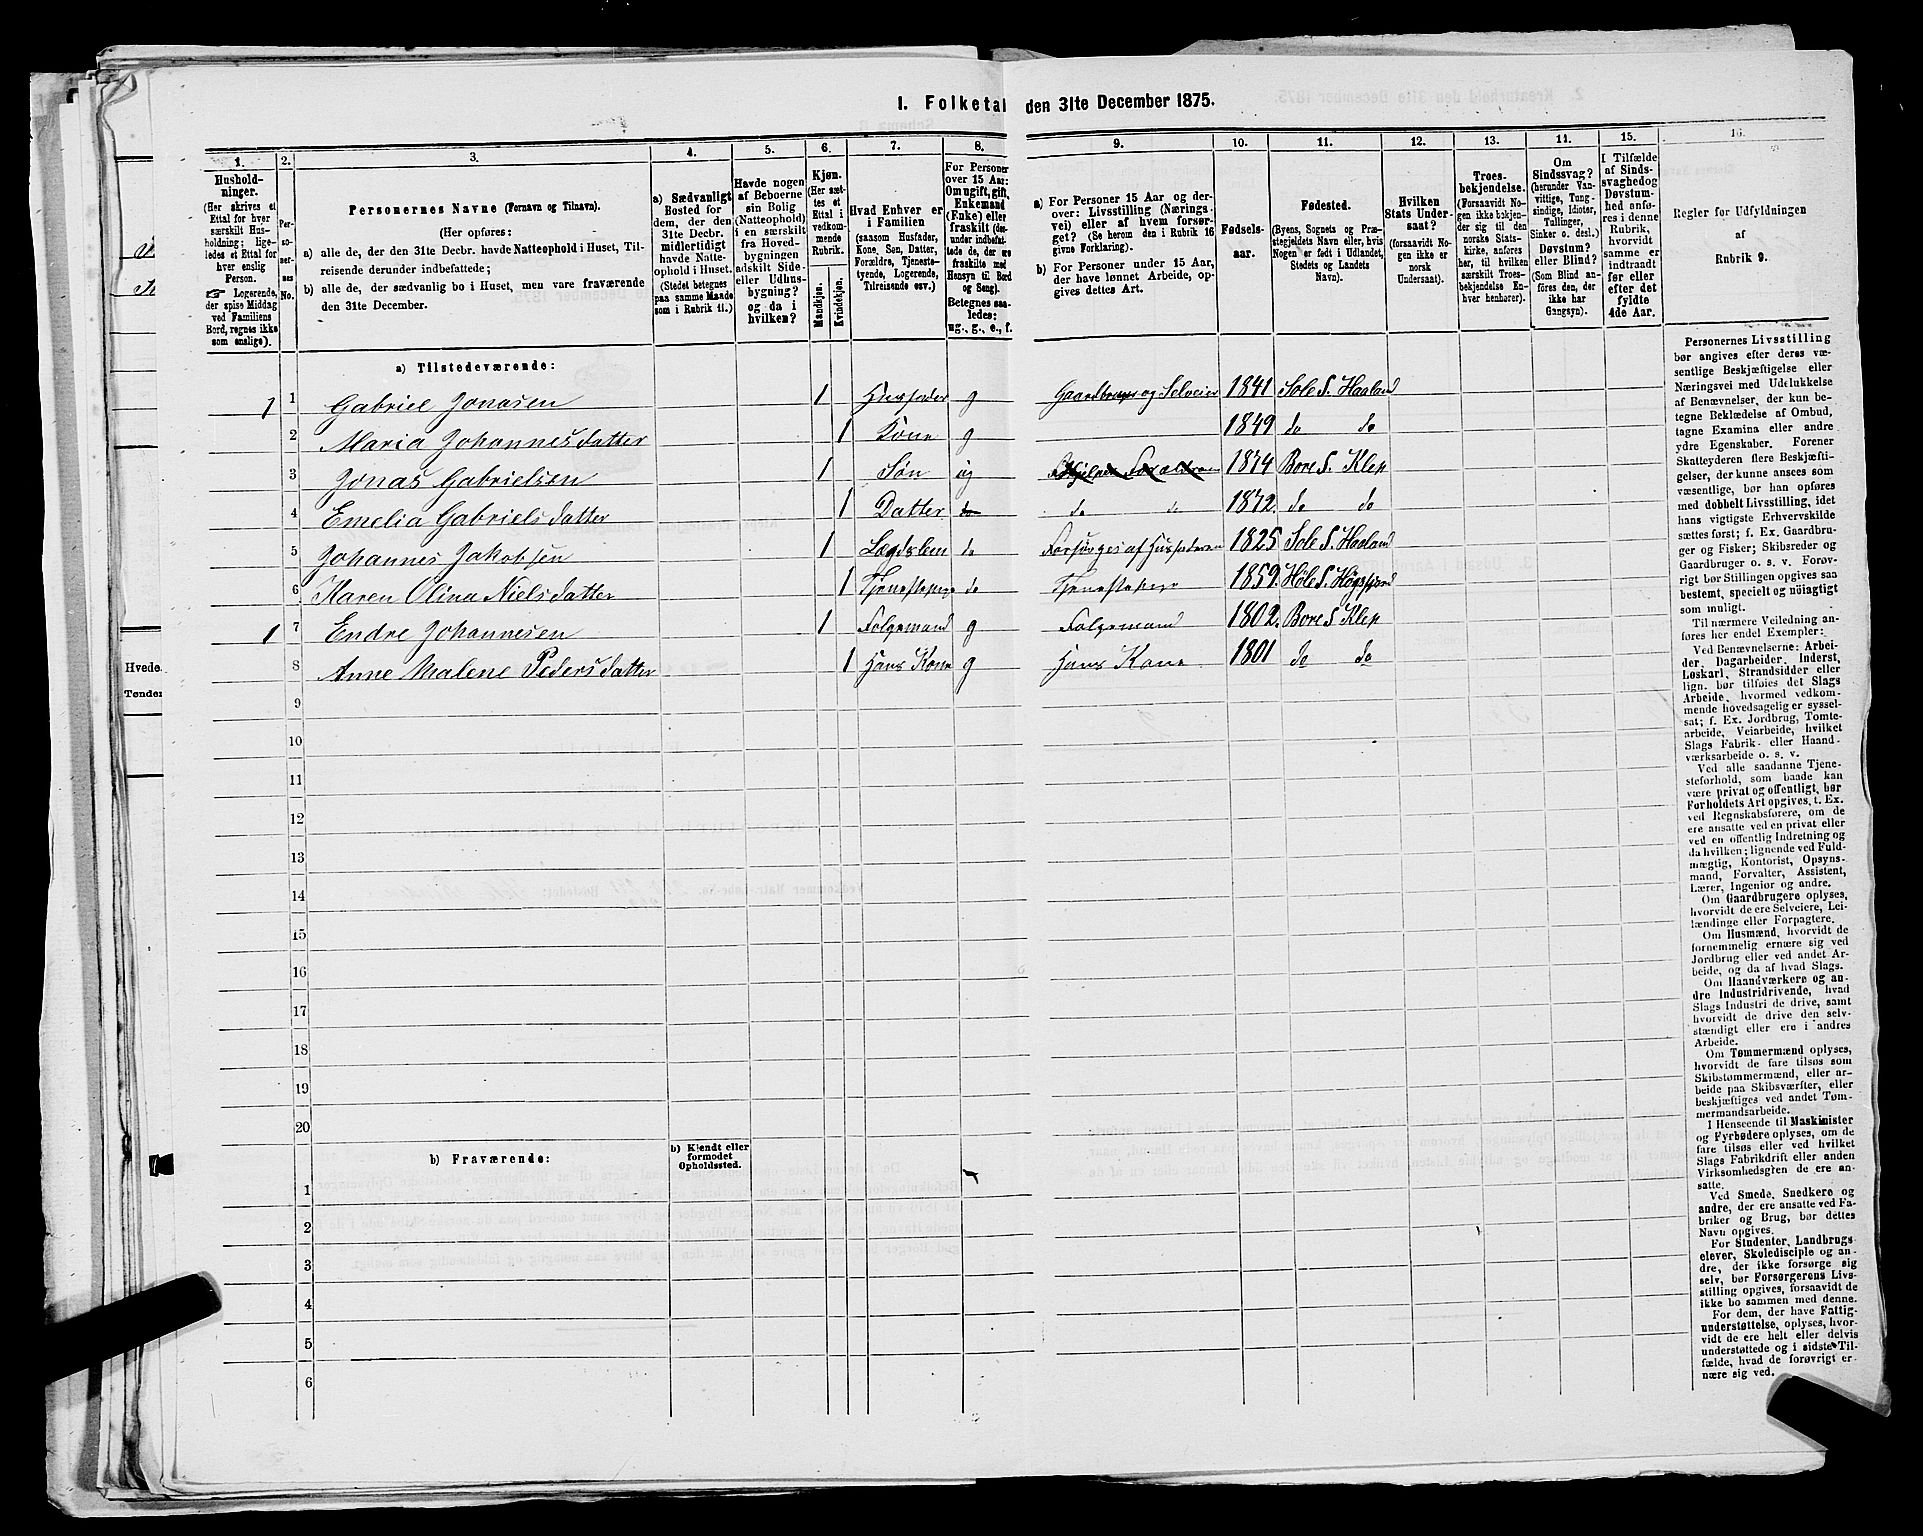 1. Folketal den 31te December 1875.
1.
2.
3.
4.
5.
6.
7.
8.
9.
10.
11.
12.
13.
14.
15.
16.
Hushold-
ninger.
(Her skrives et
Ettal for hver
særskilt Hus-
holdning; lige-
ledes et Ettal for
hver enslig
Person.
☞ Logerende,
der spise Middag
ved Familiens
Bord, regnes ikke
som enslige).
Per-
so-
ner-
nes
No.
Personernes Navne (Fornavn og Tilnavn).
(Her opføres:
a) alle de, der den 31te Decbr. havde Natteophold i Huset, Til-
reisende derunder indbefattede;
b) alle de, der sædvanlig bo i Huset, men vare fraværende
den 31te December.
a) Sædvanligt
Bosted for
dem, der den
31te Decbr.
midlertidigt
havde Natte-
ophold i Huset.
(Stedet betegnes
paa samme Maade
som i Rubrik 11.)
Havde nogen
af Beboerne
sin Bolig
(Natteophold)
i en særskilt
fra Hoved-
bygningen
adskilt Side-
eller Udhus-
bygning?
og da i
hvilken?
Kjøn.
(Her sæt-
tes et
Ettal i
vedkom-
mende
Rubrik.
Mandkjøn.
Kvindekjøn.
Hvad Enhver er
i Familien
(saasom Husfader,
Kone, Søn, Datter,
Forældre, Tjeneste-
tyende, Logerende,
Tilreisende osv.)
For Personer
over 15 Aar:
Om ugift, gift,
Enkemand
(Enke) eller
fraskilt (der-
under indbefat-
tede de, der ere
fraskilte med
Hensyn til Bord
og Seng).
Betegnes saa-
ledes:
ug., g., e., f.
a) For Personer 15 Aar og der-
over: Livsstilling (Nærings-
vei) eller af hvem forsør-
get? (Se herom den i Rubrik 16
givne Forklaring).
b) For Personer under 15 Aar,
der have lønnet Arbeide, op-
gives dettes Art.
Fødsels-
aar.
Fødested.
(Byens, Sognets og Præ-
stegjeldets Navn eller, hvis
Nogen er født i Udlandet,
Stedets og Landets
Navn).
Hvilken
Stats Under-
saat?
(forsaavidt No-
gen ikke er
norsk
Undersaat).
Troes-
bekjendelse.
(Forsaavidt No-
gen ikke bekjen-
der sig til den
norske Stats-
kirke, anføres
her, til hvilken
særskilt Troes-
bekjendelse En-
hver henhører).
Om
Sindssvag?
(herunder Van-
vittige, Tung-
sindige, Idioter,
Tullinger,
Sinker o. desl.)
Døvstum?
eller Blind?
(Som Blind an-
føres den, der
ikke har
Gangsyn).
I Tilfælde
af Sinds-
svaghed og
Døvstum-
hed anfø-
res i denne
Rubrik,
hvorvidt
samme er
indtraadt
før eller
efter det
fyldte
4de Aar.
Regler for Udfyldningen
af
Rubrik 9.
a) Tilstedeværende:
1 1 Gabriel Jonasen 1 Husfader g Gaardbruger og Selveier 1841 Sole S. Haaland
2 Maria Johannesdatter 1 Kone g 1849 do do
3 Jonas Gabrielsen 1 Søn ug 1874 Bore S. Klep
4 Emelia Gabrielsdatter 1 Datter do do do 1872. do do
5 Johannes Jakobsen 1 Lægdslem do Forsørges af Husfaderen 1825 Sole S. Haaland
6 Karen Olina Nielsdatter 1 Tjenestepige do Tjenestepige 1859. Høle S. Høgsfjord
1 7 Endre Johannesen 1 Folgemand g Folgemand 1802. Bore S Klep
8 Anne Malene Pedersdatter 1 Hans Kone g Hans Kone 1801 do do
9
10
11
12
13
14
15
16
17
18
19
20
b) Fraværende:
b) Kjendt eller
formodet
Opholdssted.
1
2
3
4
5
6
Personernes Livsstilling
bør angives efter deres væ-
sentlige Beskjæftigelse eller
Næringsvei med Udelukkelse
af Benævnelser, der kun be-
tegne Beklædelse af Ombud,
tagne Examina eller andre
ydre Egenskaber. Forener
Skatteyderen flere Beskjæfti-
gelser, der kunne ansees som
væsentlige, bør han opføres
med dobbelt Livsstilling, idet
hans vigtigste Erhvervskilde
sættes først; f. Ex. Gaardbru-
ger og Fisker; Skibsreder og
Gaardbruger o. s. v. Forøv-
rigt bør Stillingen opgives saa
bestemt, specielt og nøiagtigt
som muligt.
Til nærmere Veiledning an-
føres her endel Exempler:
Ved Benævnelserne: Arbei-
der, Dagarbeider, Inderst,
Løskarl, Strandsidder eller
lign. bør tilføies det Slags
Arbeide, hvormed vedkom-
mende hovedsagelig er syssel-
sat; f. Ex. Jordbrug, Tomte-
arbeide, Veiarbeide, hvilket
Slags Fabrik- eller Haand-
værksarbeide o. s. v.
Ved alle saadanne Tjene-
steforhold, som baade kan
være privat og offentligt, bør
Forholdets Art opgives, t. Ex.
ved Regnskabsførere, om de
ere ansatte ved en privat eller
ved en offentlig Indretning og
da hvilken; lignende ved Fuld-
mægtig, Kontorist, Opsyns-
mand, Forvalter, Assistent,
Lærer, Ingeniør og andre.
Om Gaardbrugere oplyses,
hvorvidt de ere Selveiere, Lei-
lændinge eller Forpagtere.
Om Husmænd, hvorvidt de
fornemmelig ernære sig ved
Jordbrug eller ved andet Ar-
beide, og da af hvad Slags.
Om Haandværkere og an-
dre Industridrivende, hvad
Slags Industri de drive, samt
hvorvidt de drive den selv-
stændigt eller ere i andres
Arbeide.
Om Tømmermænd oplyses,
hvorvidt de fare tilsøs som
Skibstømmermænd, eller ar-
beide paa Skibsværfter, eller
beskjæftiges ved andet Tøm-
mermandsarbeide.
I Henseende til Maskinister
og Fyrbødere oplyses, om de
fare tilsøs eller ved hvilket
Slags Fabrikdrift eller anden
Virksomhedsgren de ere an-
satte.
Ved Smede, Snedkere og
andre, der ere ansatte ved Fa-
briker og Brug, bør dettes
Navn opgives.
For Studenter, Landbrugs-
elever, Skoledisciple og an-
dre, der ikke forsørge sig
selv, bør Forsørgerens Livs-
stilling opgives, forsaavidt de
ikke bo sammen med denne.
For dem, der have Fattig-
understøttelse, oplyses, hvor-
vidt de ere helt eller delvis
understøttede og i sidste Til-
fælde, hvad de forøvrigt er-
nære sig ved.
Hvede.
Tønder